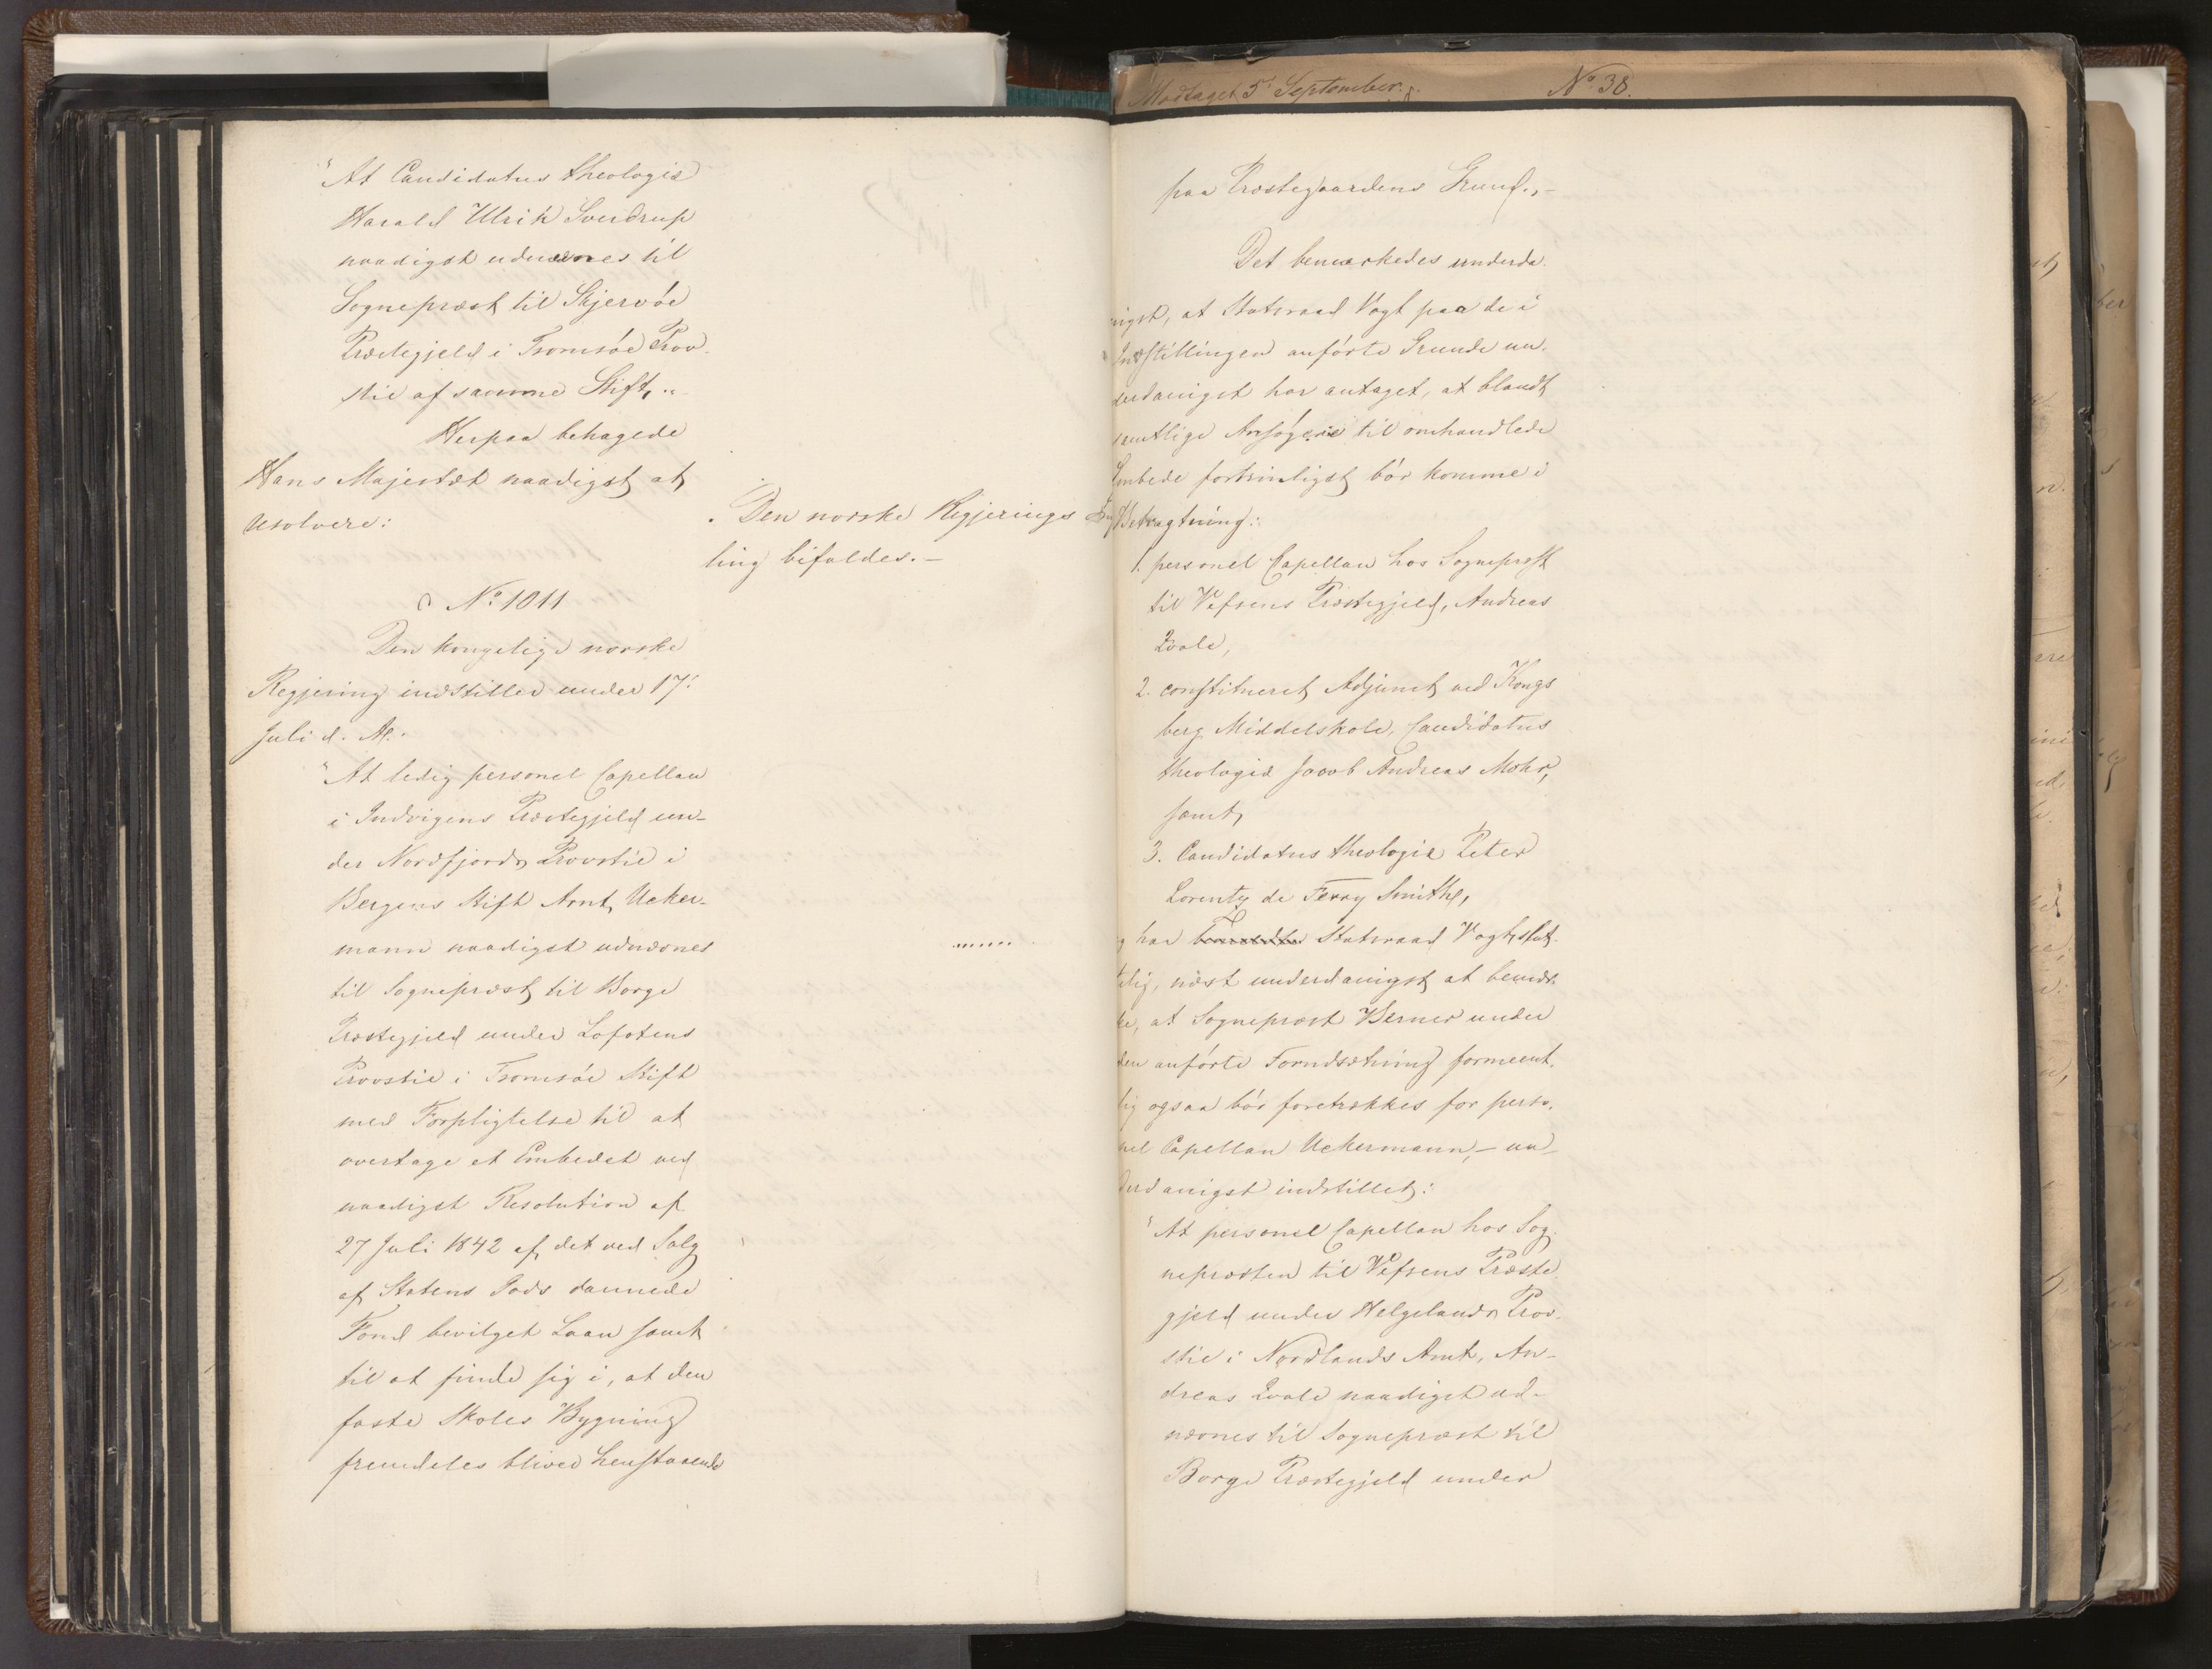 "At Candidatus theologiæ
Harald Ulrik Sverdrup
naadigst udnævnes til
Sognepræst til Skjervöe
Præstegjeld i Tromsöe Prov-
stie af samme Stift."
Herpaa behagede
Hans Majestæt naadigst at
resolvere:
Den norske Regjerings Ind
ling bifaldes.-
No. 1011
Den kongelige norske
Regjering indstiller under 17.
Juli d. A.:
"At ledig personel Capellan
i Indvigens Præstegjeld un-
der Nordfjords Provstie i
Bergens Stift Arnt Ucker-
mann naadigst udnævnes
til Sognepræst til Borge
Præstegjeld under Lofotens
Provstie i Tromsöe Stift
med Forpligtelse til at
overtage et Embedet ved
naadigst Resolution af
27 Juli 1842 af det ved Salg
af Statens Gods dannede
Fond bevilget Laan samt
til at finde sig i, at den
faste Skoles Bygning
fremdeles bliver henstaaende
.......
Modtaget 5te September.
No. 38.
paa Præstegaardens Grund.,-
Det bemærkedes underda-
nigst, at Statsraad Vogt paa de i
Indstillingen anförte Grunde un-
derdanigst har antaget, at blandt
samtlige Ansögere til omhandlede
Embede fortrinligst bör komme i
Betragtning:
1. personel Capellan hos Sognepræst
til Vefsens Præstegjeld, Andreas
Qvale,
2. constitueret Adjunct ved Kongs
berg Middelskole, Candidatus
theologiæ Jacob Andreas Mohr,
samt
3. Candidatus theologiæ Peter
Lorentz de Ferry Smith,
og har Statsraad Vogt, slut-
telig, næst underdanigst at bemær-
ke, at Sognepræst Berner under
den anförte Forudsætning formeent-
lig ogsaa bör foretrækkes for perso-
nel Capellan Uckermann,- un-
derdanigst indstillet:
"At personel Capellan hos Sog-
nepræsten til Vefsens Præste
gjeld under Helgelands Prov-
stie i Nordlands Amt, An-
dreas Qvale naadigst ud-
nævnes til Sognepræst til
Borge Præstegjeld under